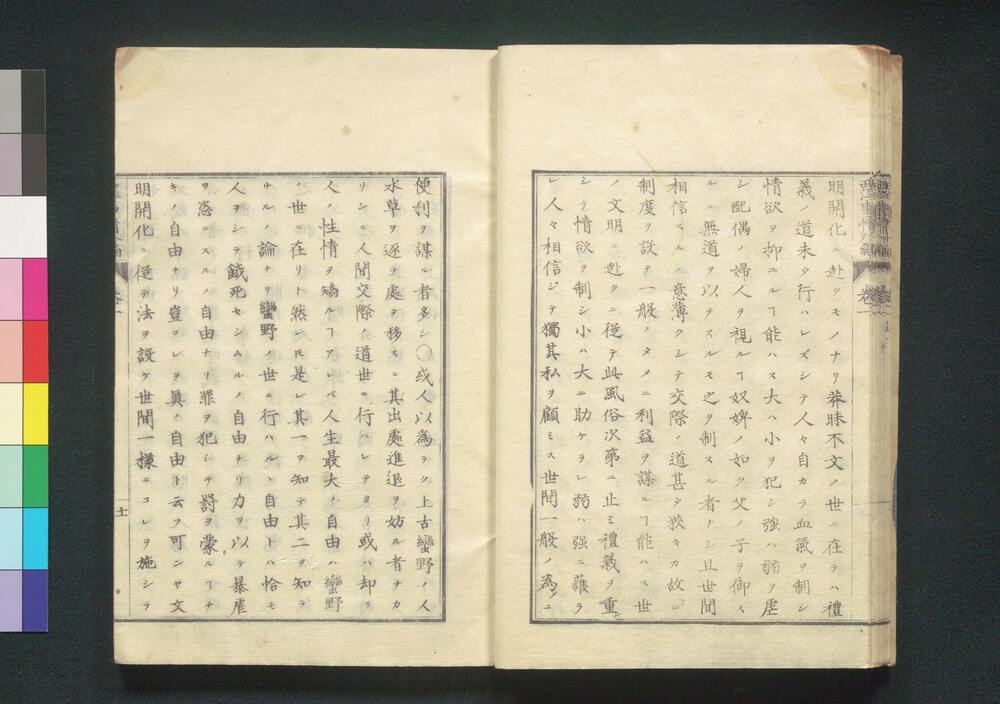 明開化ニ赴クモノナリ莽昧不文ノ世ニ在テハ禮
義ノ道未タ行ハレズシテ人々自カラ血氣ヲ制シ
情欲ヲ抑ユルヿ能ハス大ハ小ヲ犯シ強ハ弱ヲ虐
シ配偶ノ婦人ヲ視ルヿ奴婢ノ如ク父ノ子ヲ御ス
ルニ無道ヲ以テスルモ之ヲ制スル者ナシ且世間
相信スルノ意薄クシテ交際ノ道甚タ狹キカ故ニ
制度ヲ設テ一般ノタメニ利益ヲ謀ルヿ能ハス世
ノ文明ニ赴クニ從テ此風俗次第ニ止ミ禮義ヲ重
シテ情欲ヲ制シ小ハ大ニ助ケラレ弱ハ强ニ護ラ
レ人々相信シテ獨其私ヲ顧ミス世間一般ノ為メニ
便利ヲ謀ル者多シ○或人以為ラク上古蠻野ノ人
水草ヲ逐テ處ヲ移スニ其出處進退ヲ妨ル者ナカ
リシニ人間交際ノ道世ニ行ハレテヨリ或ハ却テ
人ノ性情ヲ矯ルヿアレバ人生最大ノ自由ハ蠻野
ノ世ニ在リト然レ𪜈是レ其一ヲ知テ其二ヲ知ラ
サルノ論ナリ蠻野ノ世ニ行ハルヽ自由トハ恰モ
人ヲシテ餓死セシムルノ自由ナリ力ヲ以テ暴虐
ヲ恣ニスルノ自由ナリ罪ヲ犯シテ罰ヲ蒙ルヿナ
キノ自由ナリ豈コレヲ眞ノ自由ト云フ可ンヤ文
明開化ニ從テ法ヲ設ケ世間一樣ニコレヲ施シテ